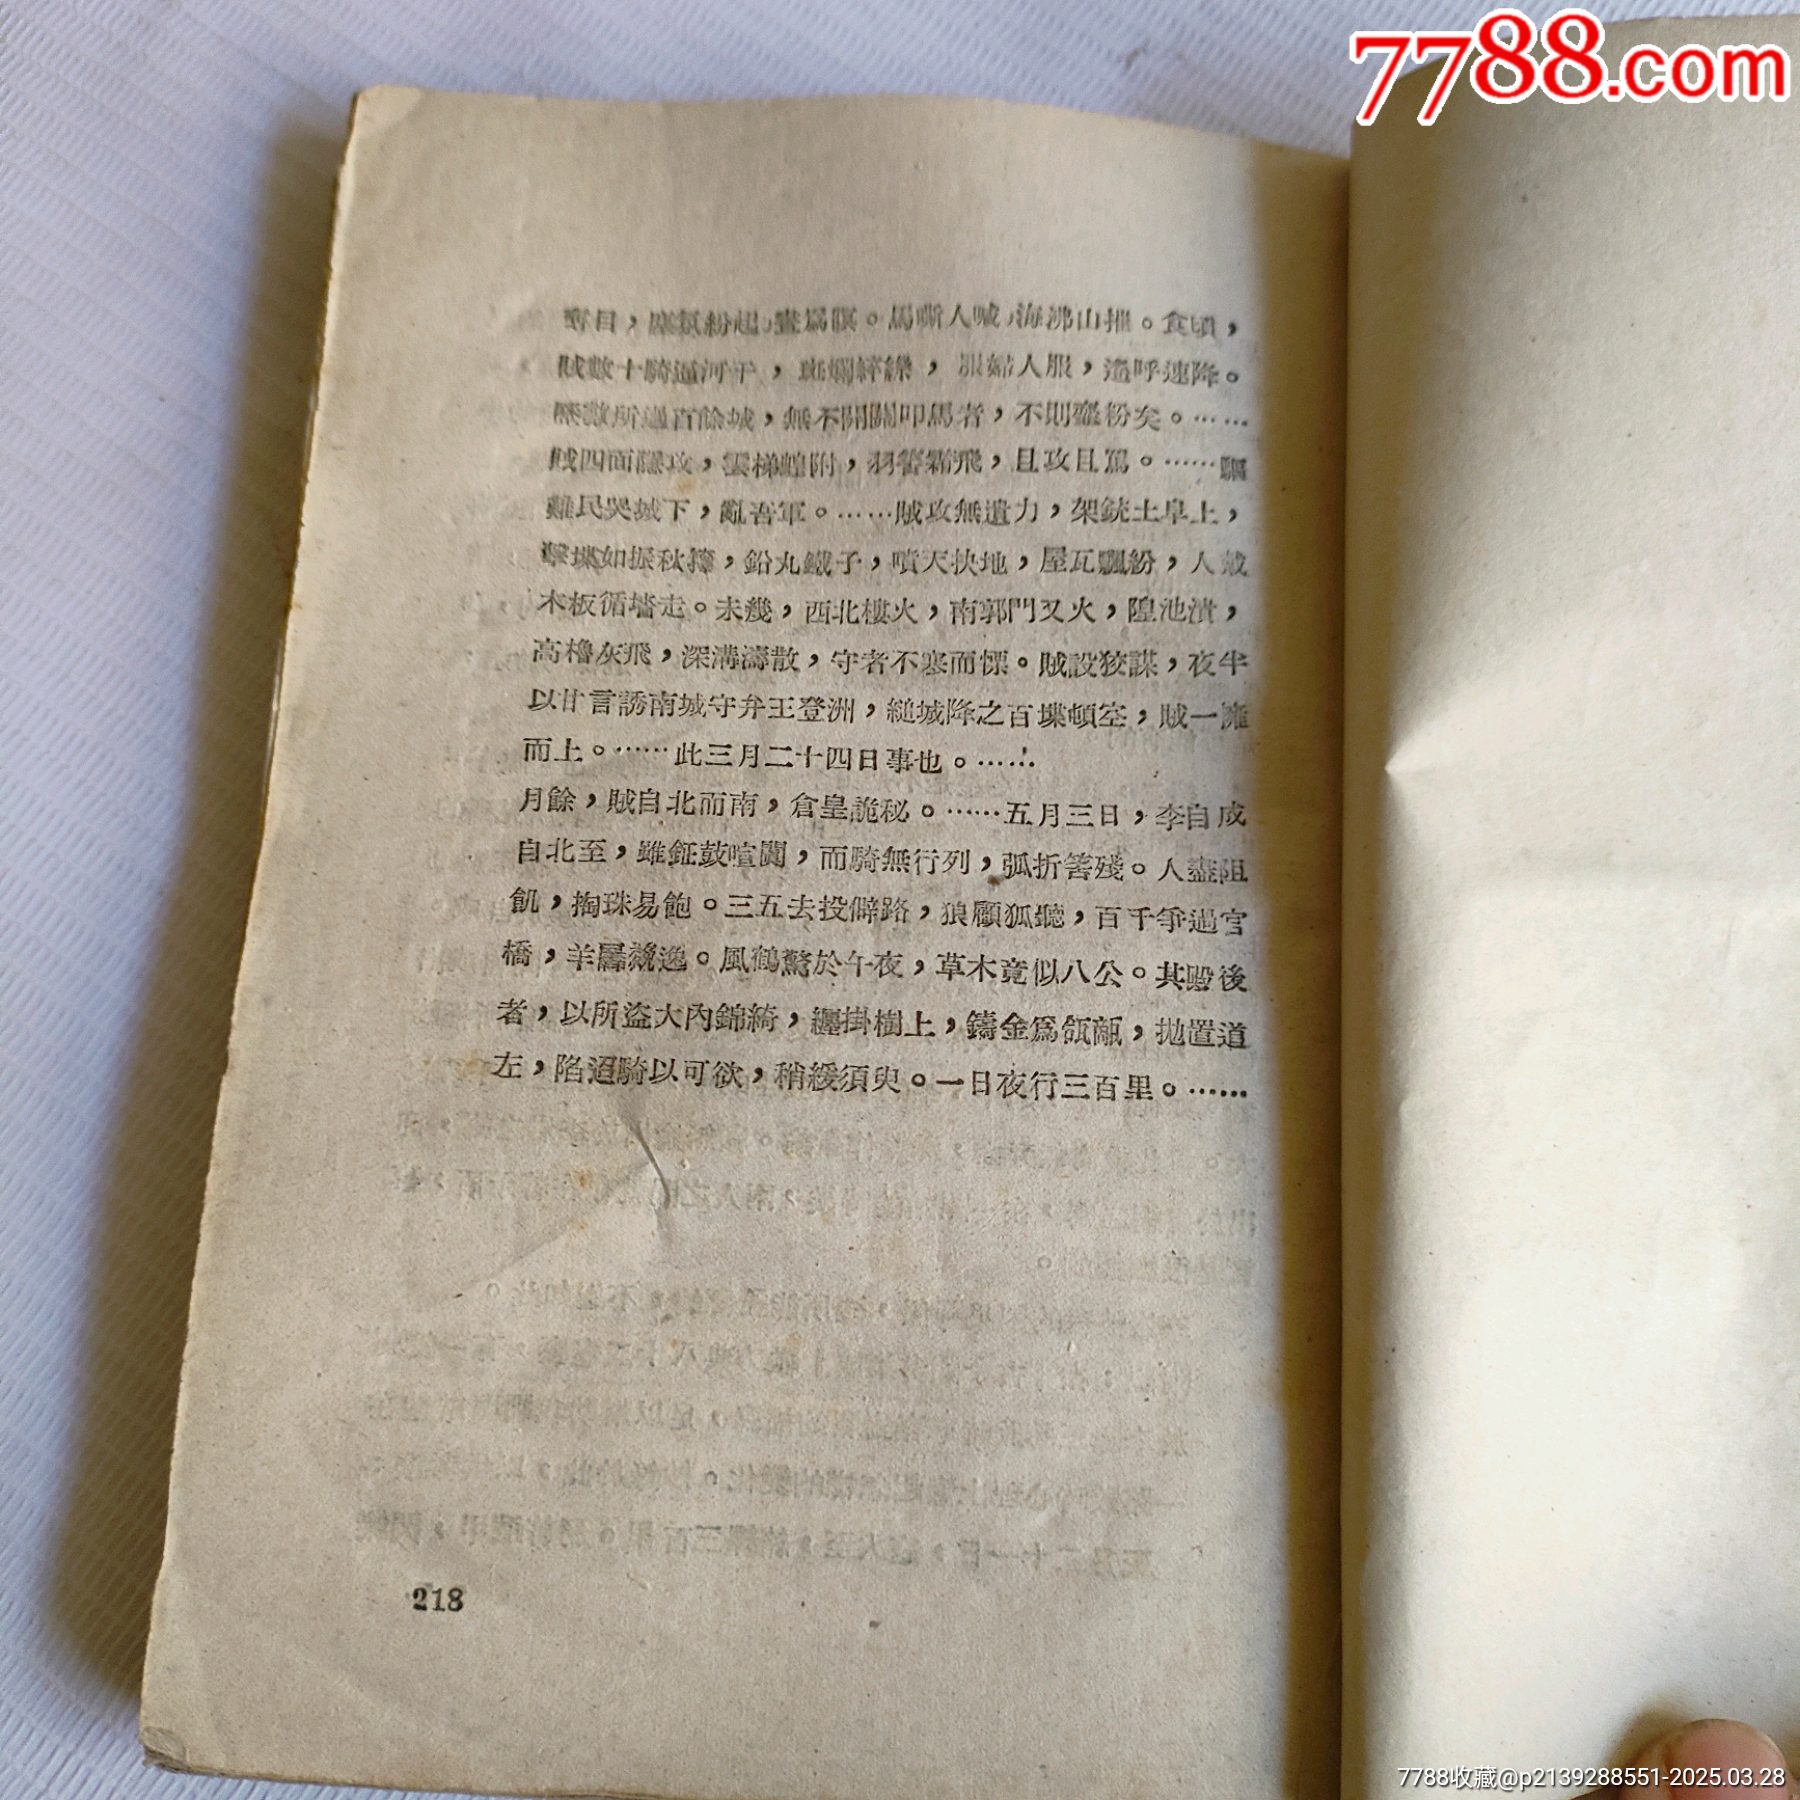 7788.com
奪目，塵氛紛起，晝爲暝。馬嘶人喊，海沸山摧。食頃，
賊數十騎逼河干，斑斕綷縩，服婦人服，遙呼速降。
歷數所過百餘城，無不開關叩馬者，不則虀粉矣。……
賊四面環攻，雲梯蝗附，羽箭霜飛，且攻且罵。……驅
難民哭城下，亂吾軍。……賊攻無遺力，架銃土阜上，
擊堞如振秋籜，鉛丸鐵子，噴天抉地，屋瓦飄紛，人戴
木板循墻走。未幾，西北樓火，南郭門又火，隍池潰，
高櫓灰飛，深溝濤散，守者不寒而慄。賊設狡謀，夜半
以甘言誘南城守弁王登洲，縋城降之百堞頓空，賊一擁
而上。……此三月二十四日事也。……
月餘，賊自北而南，倉皇詭秘。……五月三日，李自成
自北至，雖鉦鼓喧闐，而騎無行列，弧折箸殘。人盡阻
飢，掏珠易飽。三五去投僻路，狼顧狐聽，百千爭過官
橋，羊羼兢逸。風鶴驚於午夜，草木竟似八公。其殿後
者，以所盜大內錦綺，纏掛樹上，鑄金爲瓴甋，拋置道
左，陷迢騎以可欲，稍緩須臾。一日夜行三百里。……
218
7788收藏@p2139288551-2025.03.28